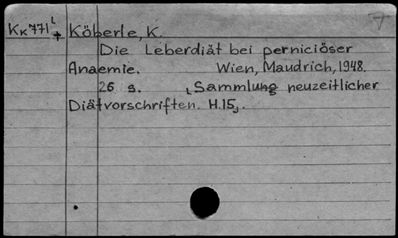 7
Kk 771 L + Köberle, K.
Die Leberdiät bei perniciöser
Anaemie. Wien, Maudrich, 1948.
26 s. (Sammlung neuzeitlicher
Diätvorschriften. H.15).